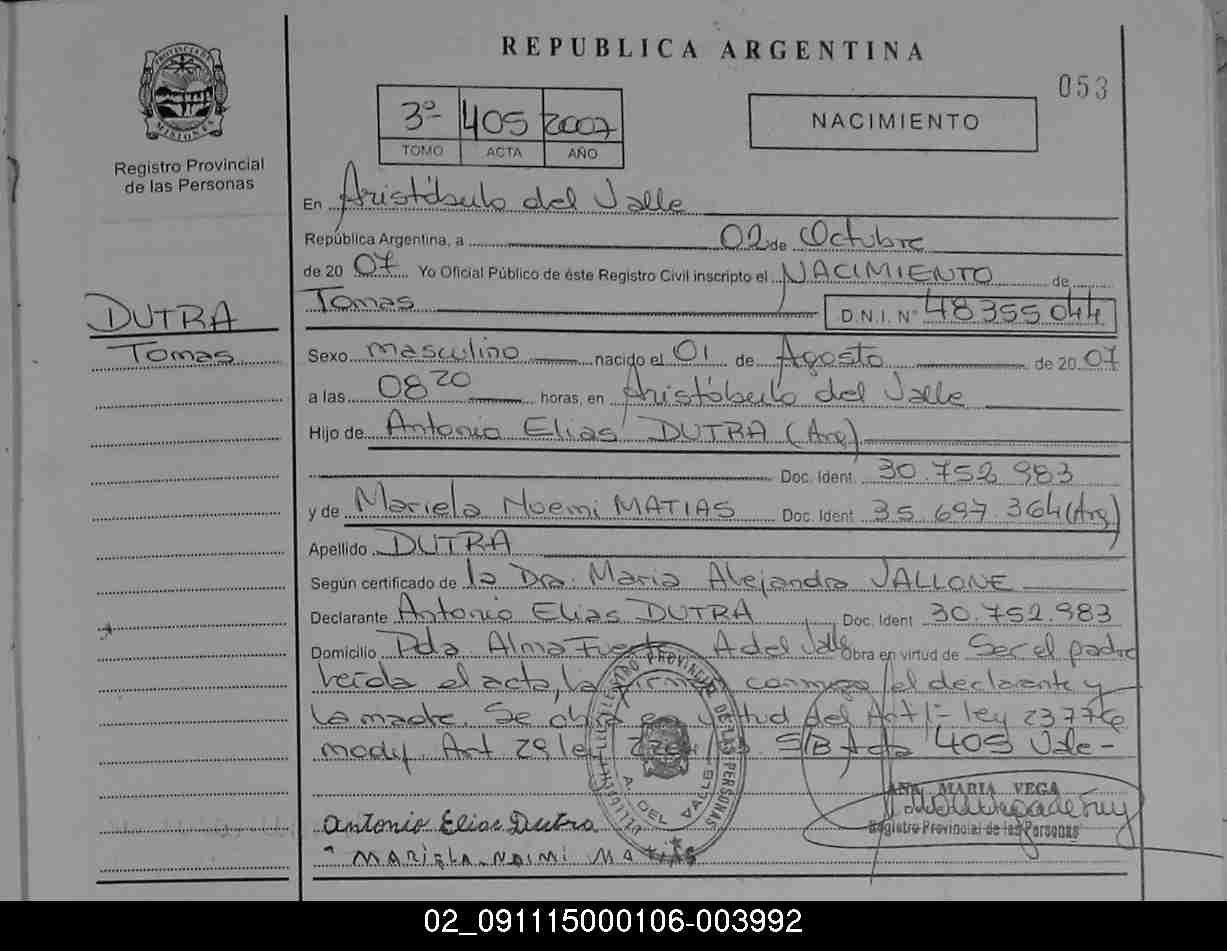 REPUBLICA ARGENTINA
053
PROVINCIA DE MISIONES
Registro Provincial
de las Personas
3º 405 2007
TOMO ACTA AÑO
NACIMIENTO
En Aristóbulo del Valle
República Argentina, a 02 de Octubre
de 20 07 Yo Oficial Público de éste Registro Civil inscripto el NACIMIENTO de
Tomas D.N.I. Nº 48355044
DUTRA
Tomas
Sexo masculino nacido el 01 de Agosto de 20 07
a las 08 20 horas, en Aristóbulo del Valle
Hijo de Antonio Elias DUTRA (Arg)
Doc. Ident. 30.752.983
y de Mariela Noemi MATIAS Doc. Ident 35.697.364 (Arg)
Apellido DUTRA
Según certificado de la Dra. Maria Alejandra JALLONE
Declarante Antonio Elias DUTRA Doc. Ident 30.752.983
Domicilio Pda Alma Fuerte A del Valle Obra en virtud de Ser el padre
leída el acta, la firma conmigo el declarante y
la madre. Se obra en virtud del Art 1- ley 23776
modf. Art. 29 ley S/B Acta 405 Vale-
REGISTRO PROVINCIAL DE LAS PERSONAS
A. DEL VALLE
ANA MARIA VEGA
Registro Provincial de las Personas
Antonio Elias Dutra
MARIELA NOIMI MATIAS
02_091115000106-003992